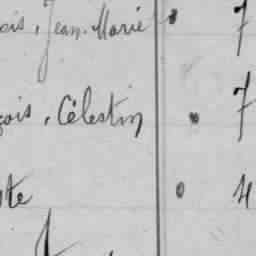 ois, Jean-Marie . 7
çois, Célestin . 7
ste . 4